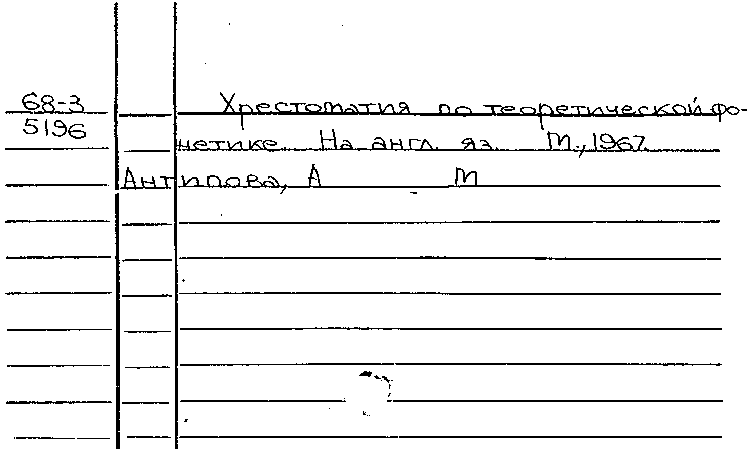 68-3 Хрестоматия по теоретической фо-
5196 нетике. На англ. яз. М., 1967.
Антипова, А М